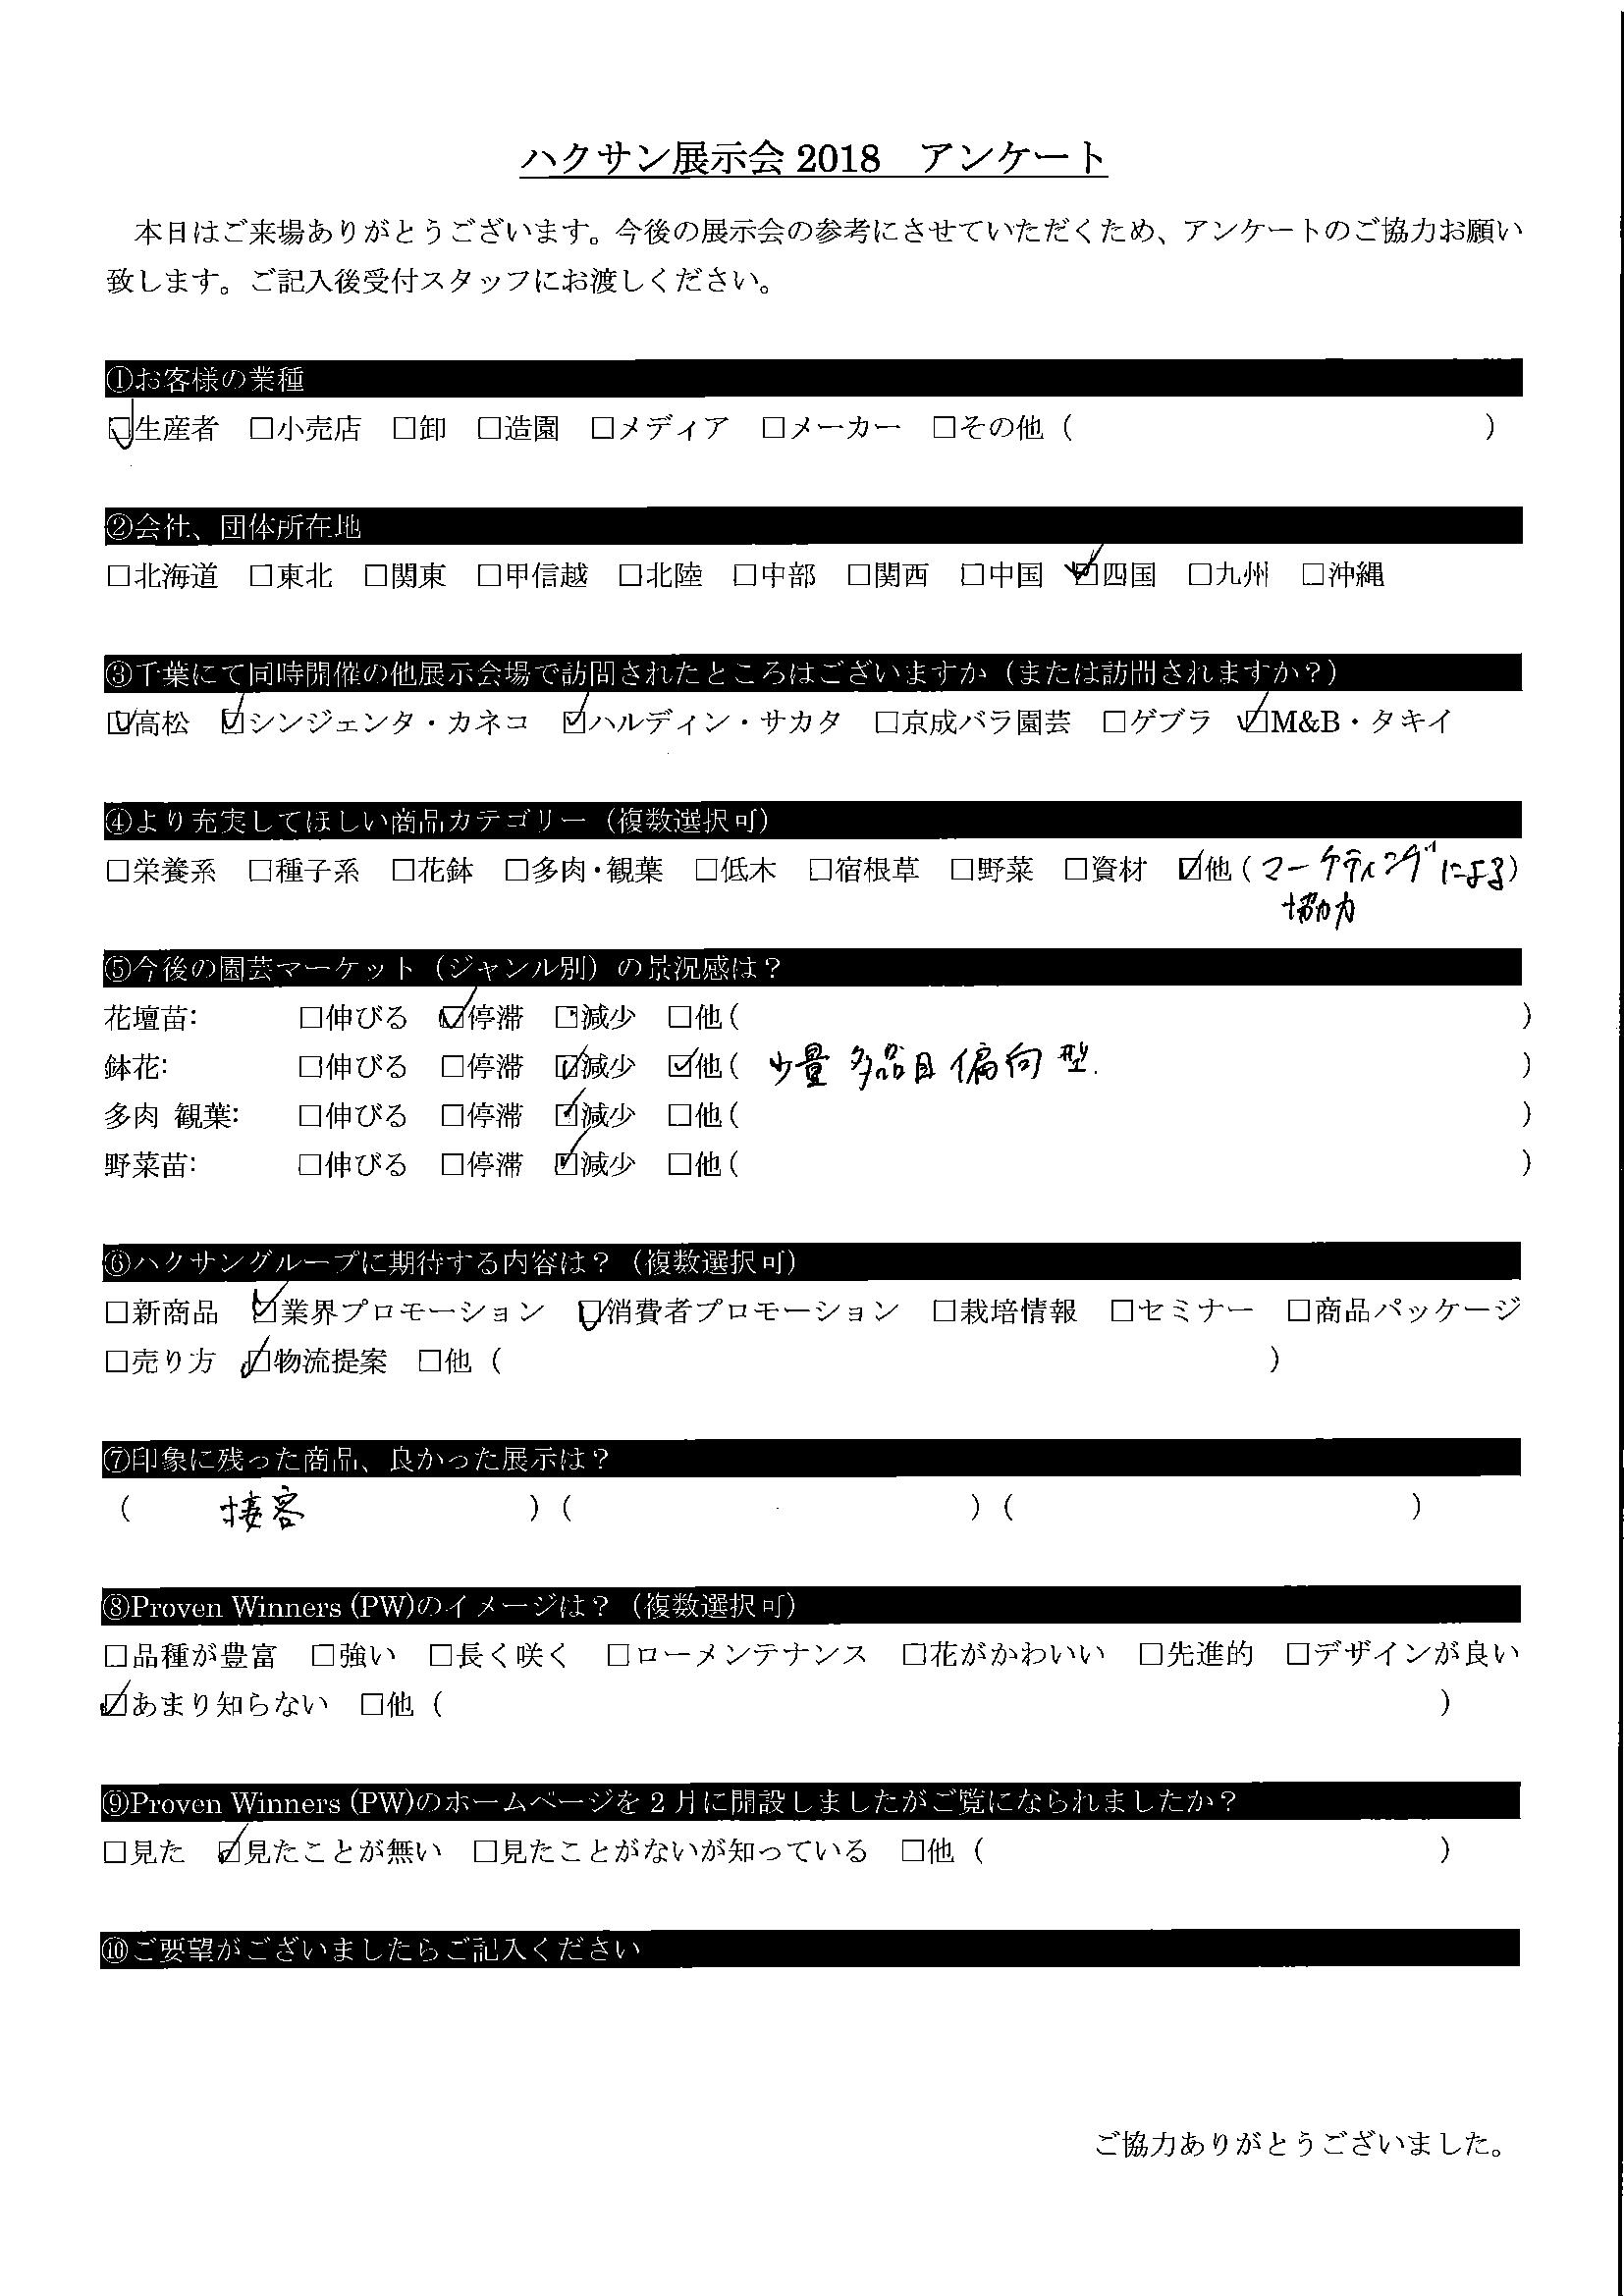 ハクサン展示会 2018　アンケート
本日はご来場ありがとうございます。今後の展示会の参考にさせていただくため、アンケートのご協力お願い
致します。ご記入後受付スタッフにお渡しください。
①お客様の業種
☑生産者　□小売店　□卸　□造園　□メディア　□メーカー　□その他（　）
②会社、団体所在地
□北海道　□東北　□関東　□甲信越　□北陸　□中部　□関西　□中国　☑四国　□九州　□沖縄
③千葉にて同時開催の他展示会場で訪問されたところはございますか（または訪問されますか？）
☑高松　☑シンジェンタ・カネコ　☑ハルディン・サカタ　□京成バラ園芸　□ゲブラ　☑M&B・タキイ
④より充実してほしい商品カテゴリー（複数選択可）
□栄養系　□種子系　□花鉢　□多肉・観葉　□低木　□宿根草　□野菜　□資材　☑他（マーケティングによる）
協力
⑤今後の園芸マーケット（ジャンル別）の景況感は？
花壇苗:　□伸びる　☑停滞　□減少　□他(　)
鉢花:　□伸びる　□停滞　☑減少　☑他(　少量 多品目 偏向型.　)
多肉 観葉:　□伸びる　□停滞　☑減少　□他(　)
野菜苗:　□伸びる　□停滞　☑減少　□他(　)
⑥ハクサングループに期待する内容は？（複数選択可）
□新商品　☑業界プロモーション　☑消費者プロモーション　□栽培情報　□セミナー　□商品パッケージ
□売り方　☑物流提案　□他（　）
⑦印象に残った商品、良かった展示は？
（　接客　）（　）（　）
⑧Proven Winners (PW)のイメージは？（複数選択可）
□品種が豊富　□強い　□長く咲く　□ローメンテナンス　□花がかわいい　□先進的　□デザインが良い
☑あまり知らない　□他（　）
⑨Proven Winners (PW)のホームページを 2 月に開設しましたがご覧になられましたか？
□見た　☑見たことが無い　□見たことがないが知っている　□他（　）
⑩ご要望がございましたらご記入ください
ご協力ありがとうございました。